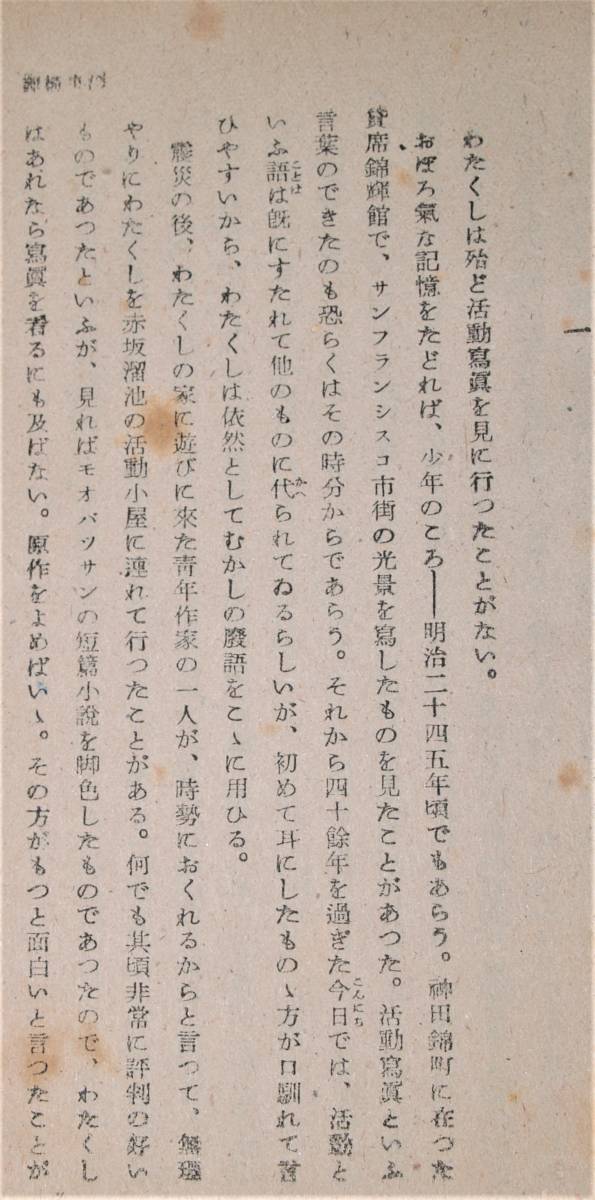 一
わたくしは殆ど活動寫眞を見に行つたことがない。
おぼろ氣な記憶をたどれば、少年のころ――明治二十四五年頃でもあらう。神田錦町に在つた
貸席錦輝館で、サンフランシスコ市街の光景を寫したものを見たことがあつた。活動寫眞といふ
言葉のできたのも恐らくはその時分からであらう。それから四十餘年を過ぎた今日では、活動と
いふ語は既にすたれて他のものに代られてゐるらしいが、初めて耳にしたものゝ方が口馴れて言
ひやすいから、わたくしは依然としてむかしの廢語をこゝに用ひる。
震災の後、わたくしの家に遊びに來た靑年作家の一人が、時勢におくれるからと言つて、無理
やりにわたくしを赤坂溜池の活動小屋に連れて行つたことがある。何でも其頃非常に評判の好い
ものであつたといふが、見ればモオパツサンの短篇小說を脚色したものであつたので、わたくし
はあれなら寫眞を看るにも及ばない。原作をよめばいゝ。その方がもつと面白いと言つたことが